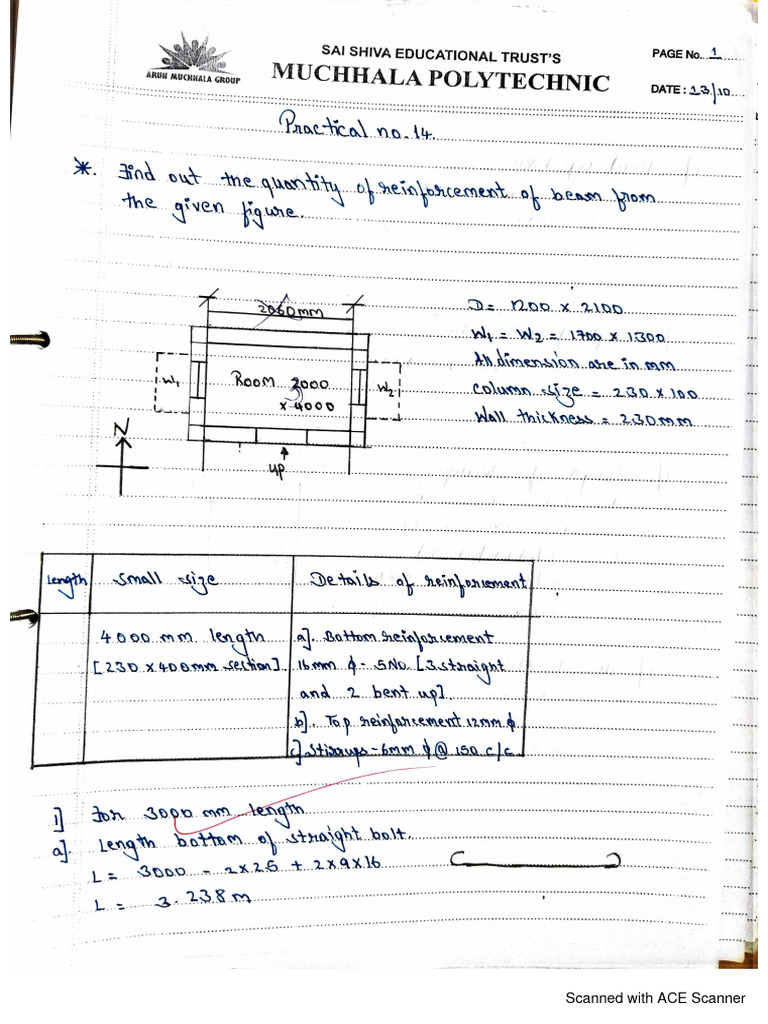 SAI SHIVA EDUCATIONAL TRUST'S
MUCHHALA POLYTECHNIC
ARUN MUCHHALA GROUP
PAGE No. 1
DATE: 13/10
Practical no. 14.
*. Find out the quantity of reinforcement of beam from
the given figure.
2060mm
W1
Room 2000
x 4000
W2
N
up
D = 1200 x 2100
W1 = W2 = 1700 x 1300
All dimension are in mm
column size = 230 x 100
Wall thickness = 230 mm
Length
small size
Details of reinforcement
4000 mm length
[230 x 400mm section]
a]. Bottom reinforcement
16mm ϕ - 5No. [3 straight
and 2 bent up].
b]. Top reinforcement 12mm ϕ
c] Stirrups - 6mm ϕ @ 150 c/c.
1] For 3000 mm length
a]. Length bottom of straight bolt.
L = 3000 - 2x25 + 2x9x16
L = 3.238 m
Scanned with ACE Scanner